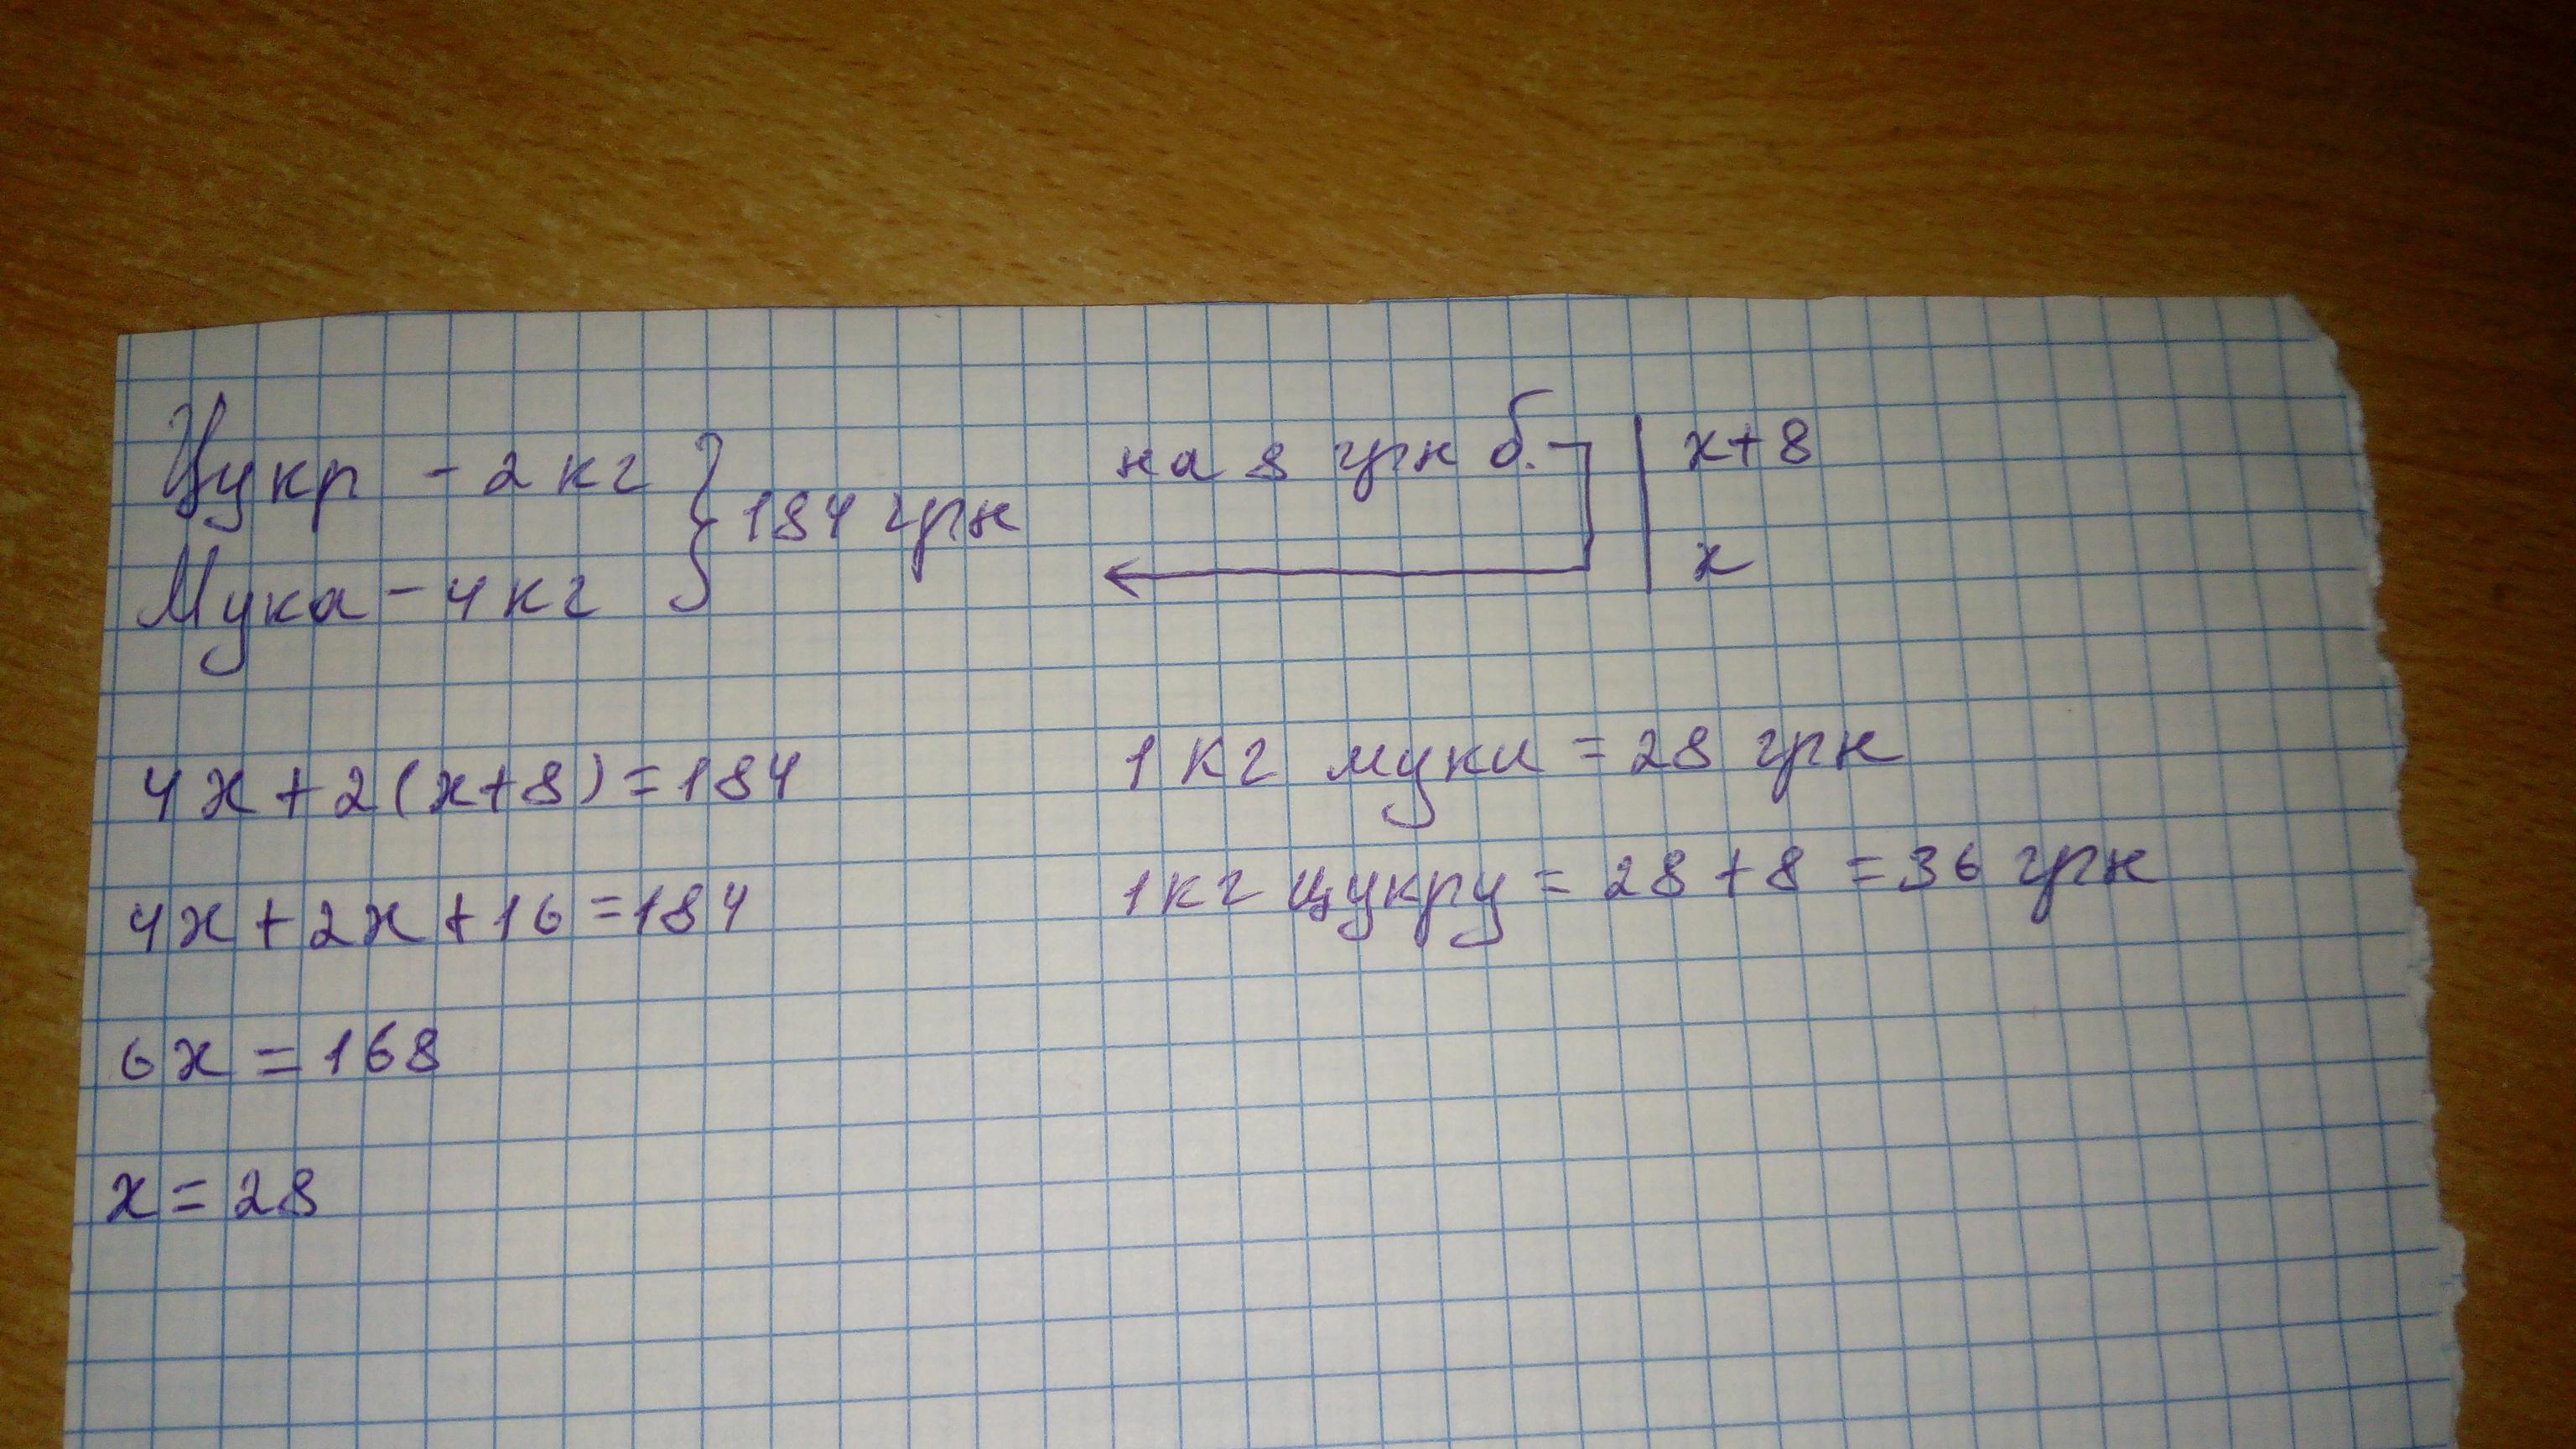 Цукр - 2 кг
Мука - 4 кг
184 грн
на 8 грн б.
x+8
x
4x+2(x+8)=184
4x+2x+16=184
6x=168
x=28
1 кг муки = 28 грн
1 кг цукру = 28+8 = 36 грн